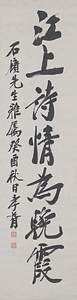 江上詩情為晚霞
石濱先生雅屬癸酉秋日孝胥